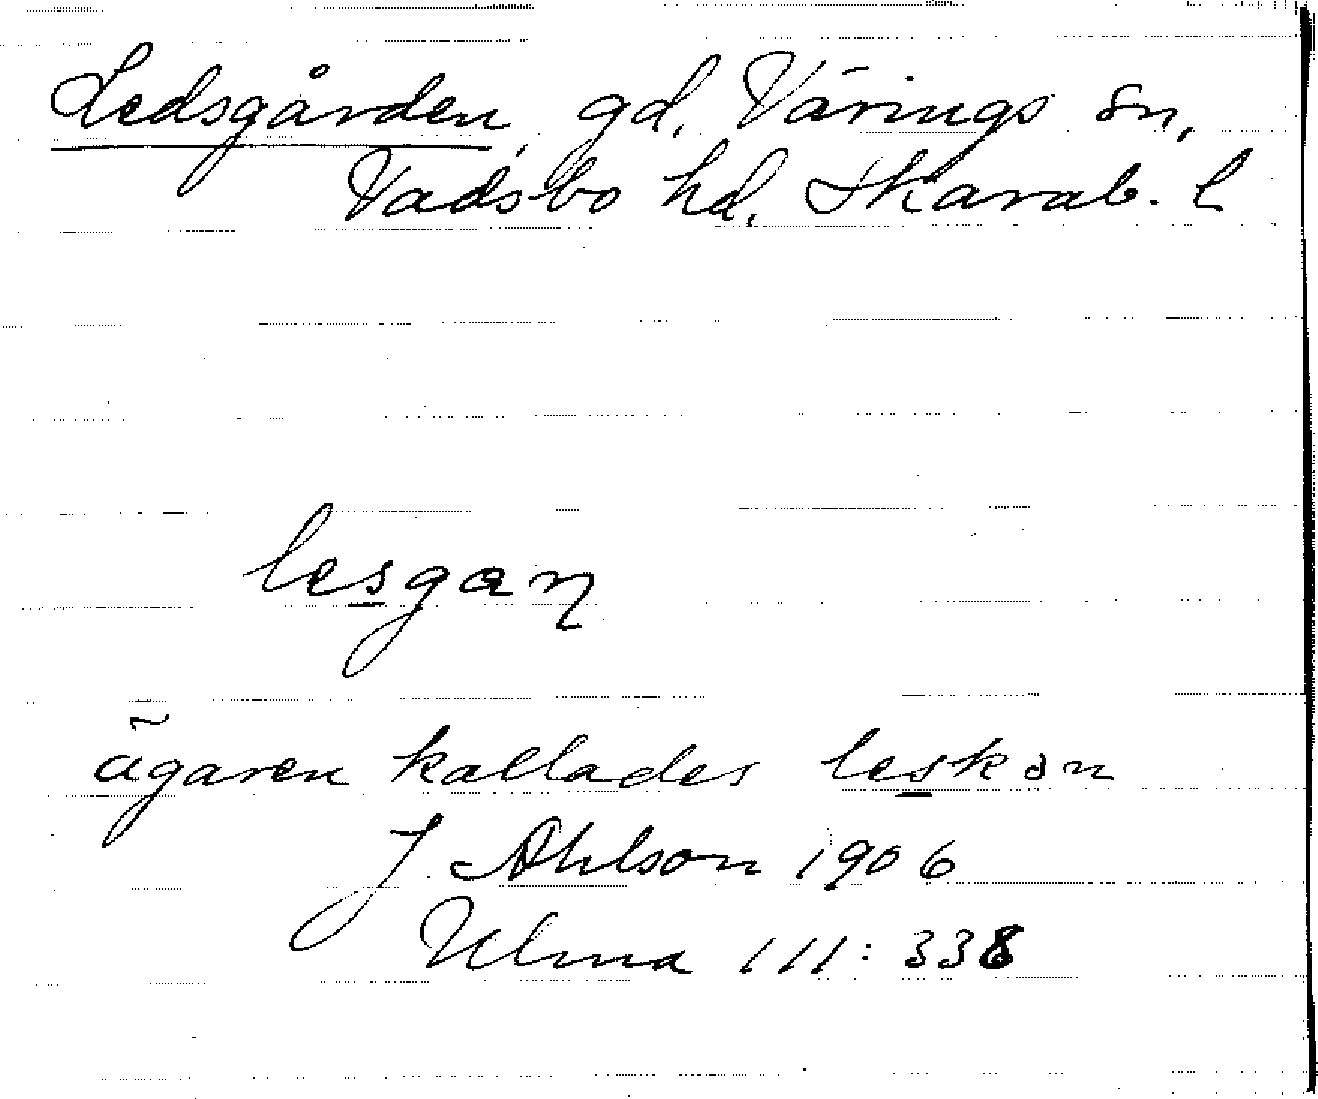 Ledsgården, gd, Värings sn,
Vadsbo hd, Skarab. l
lesgaɳ
ägaren kallades leskən
J. Ahlson 1906
Ulma 111:338